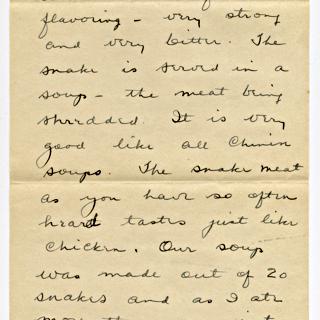 flavoring - very strong
and very bitter. The
snake is served in a
soup - the meat being
shredded. It is very
good like all Chinese
soups. The snake meat
as you have so often
heard tastes just like
chicken. Our soup
was made out of 20
snakes and as I ate
more than